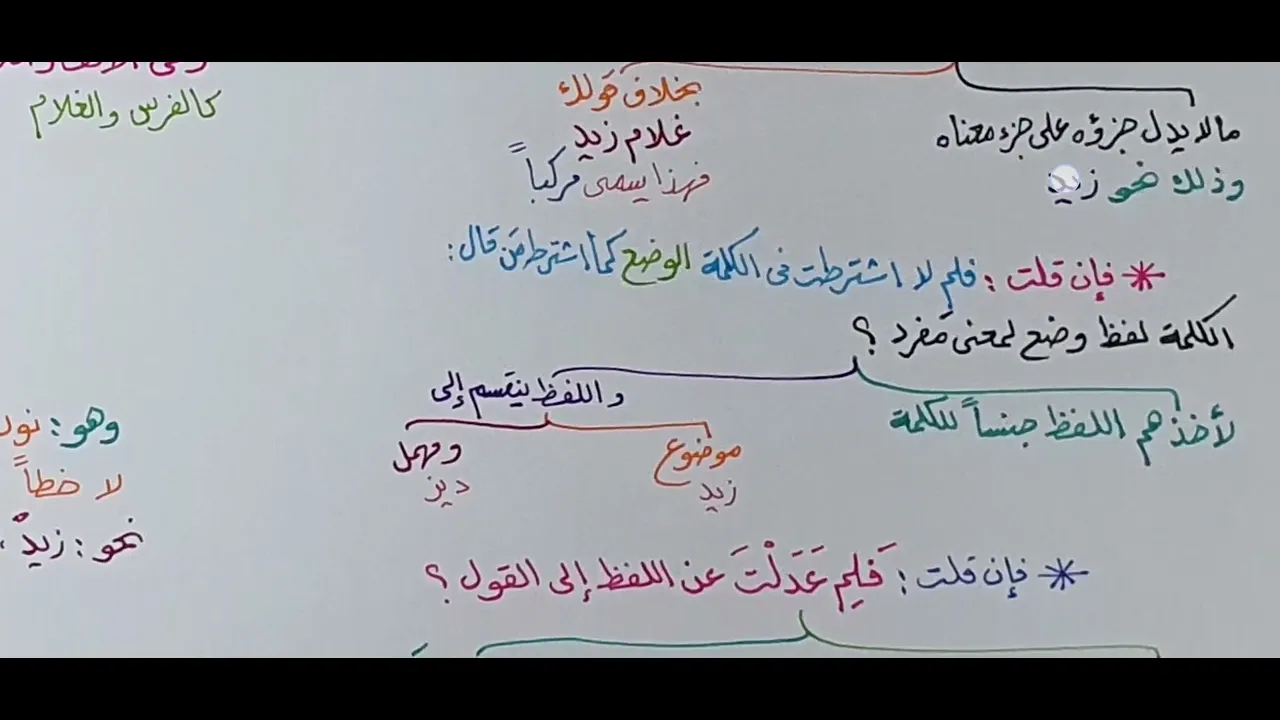 ما لا يدل جزؤه على جزء معناه
وذلك نحو زيد
بخلاف قولك
غلام زيد
فهذا يسمى مركباً
كالفرس والغلام
* فإن قلت : فلم لا اشترطت فى الكلمة الوضع كما اشترط مَن قال :
الكلمة لفظ وضع لمعنى مفرد ؟
لأخذهم اللفظ جنساً للكلمة
واللفظ ينقسم إلى
موضوع
زيد
ومهمل
ديز
وهو :
لا خطاً
نحو : زيدْ
* فإن قلت : فَلِم عَدَلْتَ عن اللفظ إلى القول ؟